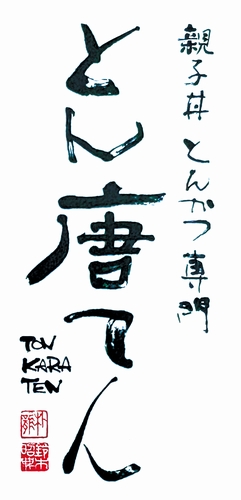 親子丼 とんかつ専門
とん唐てん
TON
KARA
TEN